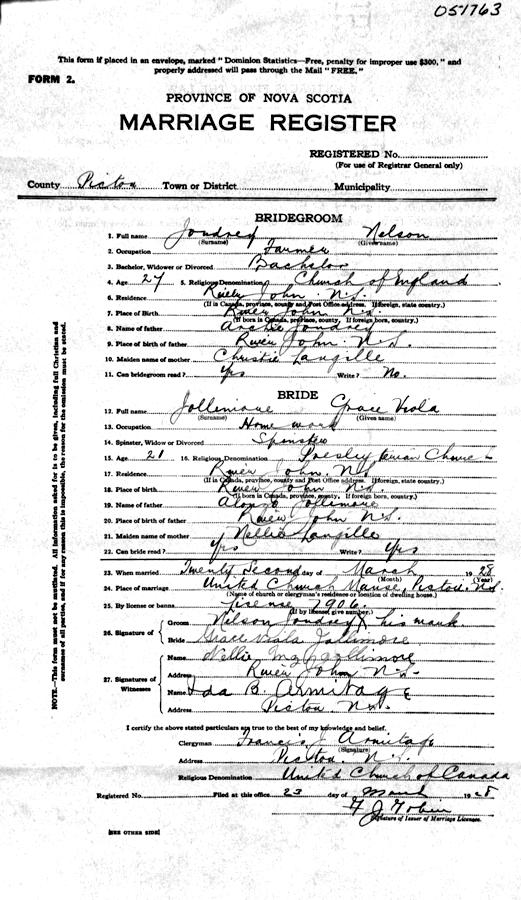 051763
This form if placed in an envelope, marked "Dominion Statistics—Free, penalty for improper use $300," and
properly addressed will pass through the Mail "FREE."
FORM 2.
PROVINCE OF NOVA SCOTIA
MARRIAGE REGISTER
REGISTERED No.
(For use of Registrar General only)
County Pictou Town or District Municipality
BRIDEGROOM
1. Full name Joudrey Nelson
(Surname) (Given name)
2. Occupation Farmer
3. Bachelor, Widower or Divorced Bachelor
4. Age 27 5. Religious Denomination Church of England
6. Residence River John N.S.
(If in Canada, province, county and Post Office address. If foreign, state country.)
7. Place of Birth River John N.S.
(If born in Canada, province, county. If foreign born, country.)
8. Name of father Archie Joudrey
9. Place of birth of father River John N.S.
10. Maiden name of mother Christie Langille
11. Can bridegroom read? Yes Write? No.
BRIDE
12. Full name Jollimore Grace Viola
(Surname) (Given name)
13. Occupation Home work
14. Spinster, Widow or Divorced Spinster
15. Age 21 16. Religious Denomination Presbyterian Church
17. Residence River John N.S.
(If in Canada, province, county and Post Office address. If foreign, state country.)
18. Place of birth River John N.S.
(If born in Canada, province, county. If foreign born, country.)
19. Name of father Alonzo Jollimore
20. Place of birth of father River John N.S.
21. Maiden name of mother Nellie Langille
22. Can bride read? Yes Write? Yes
23. When married Twenty Second day of March 1928
(Month) (Year)
24. Place of marriage United Church Manse, Pictou, N.S.
(Name of church or clergyman's residence or location of dwelling house.)
25. By license or banns License 7906.
(If by license give number.)
26. Signature of
Groom Nelson Joudrey X his mark.
Bride Grace Viola Jollimore
27. Signatures of Witnesses
Name Nellie Jollimore
Address River John N.S.
Name Ida B. Armitage
Address Pictou N.S.
I certify the above stated particulars are true to the best of my knowledge and belief.
Clergyman Francis J. Armitage
(Signature)
Address Pictou. N.S.
Religious Denomination United Church of Canada
Registered No. Filed at this office 23 day of March 1928
F J Tobin
Signature of Issuer of Marriage Licenses.
[SEE OTHER SIDE]
NOTE.—This form must not be mutilated. All information asked for is to be given, including full Christian and
surnames of all parties, and if for any reason this is impossible, the reason for the omission must be stated.